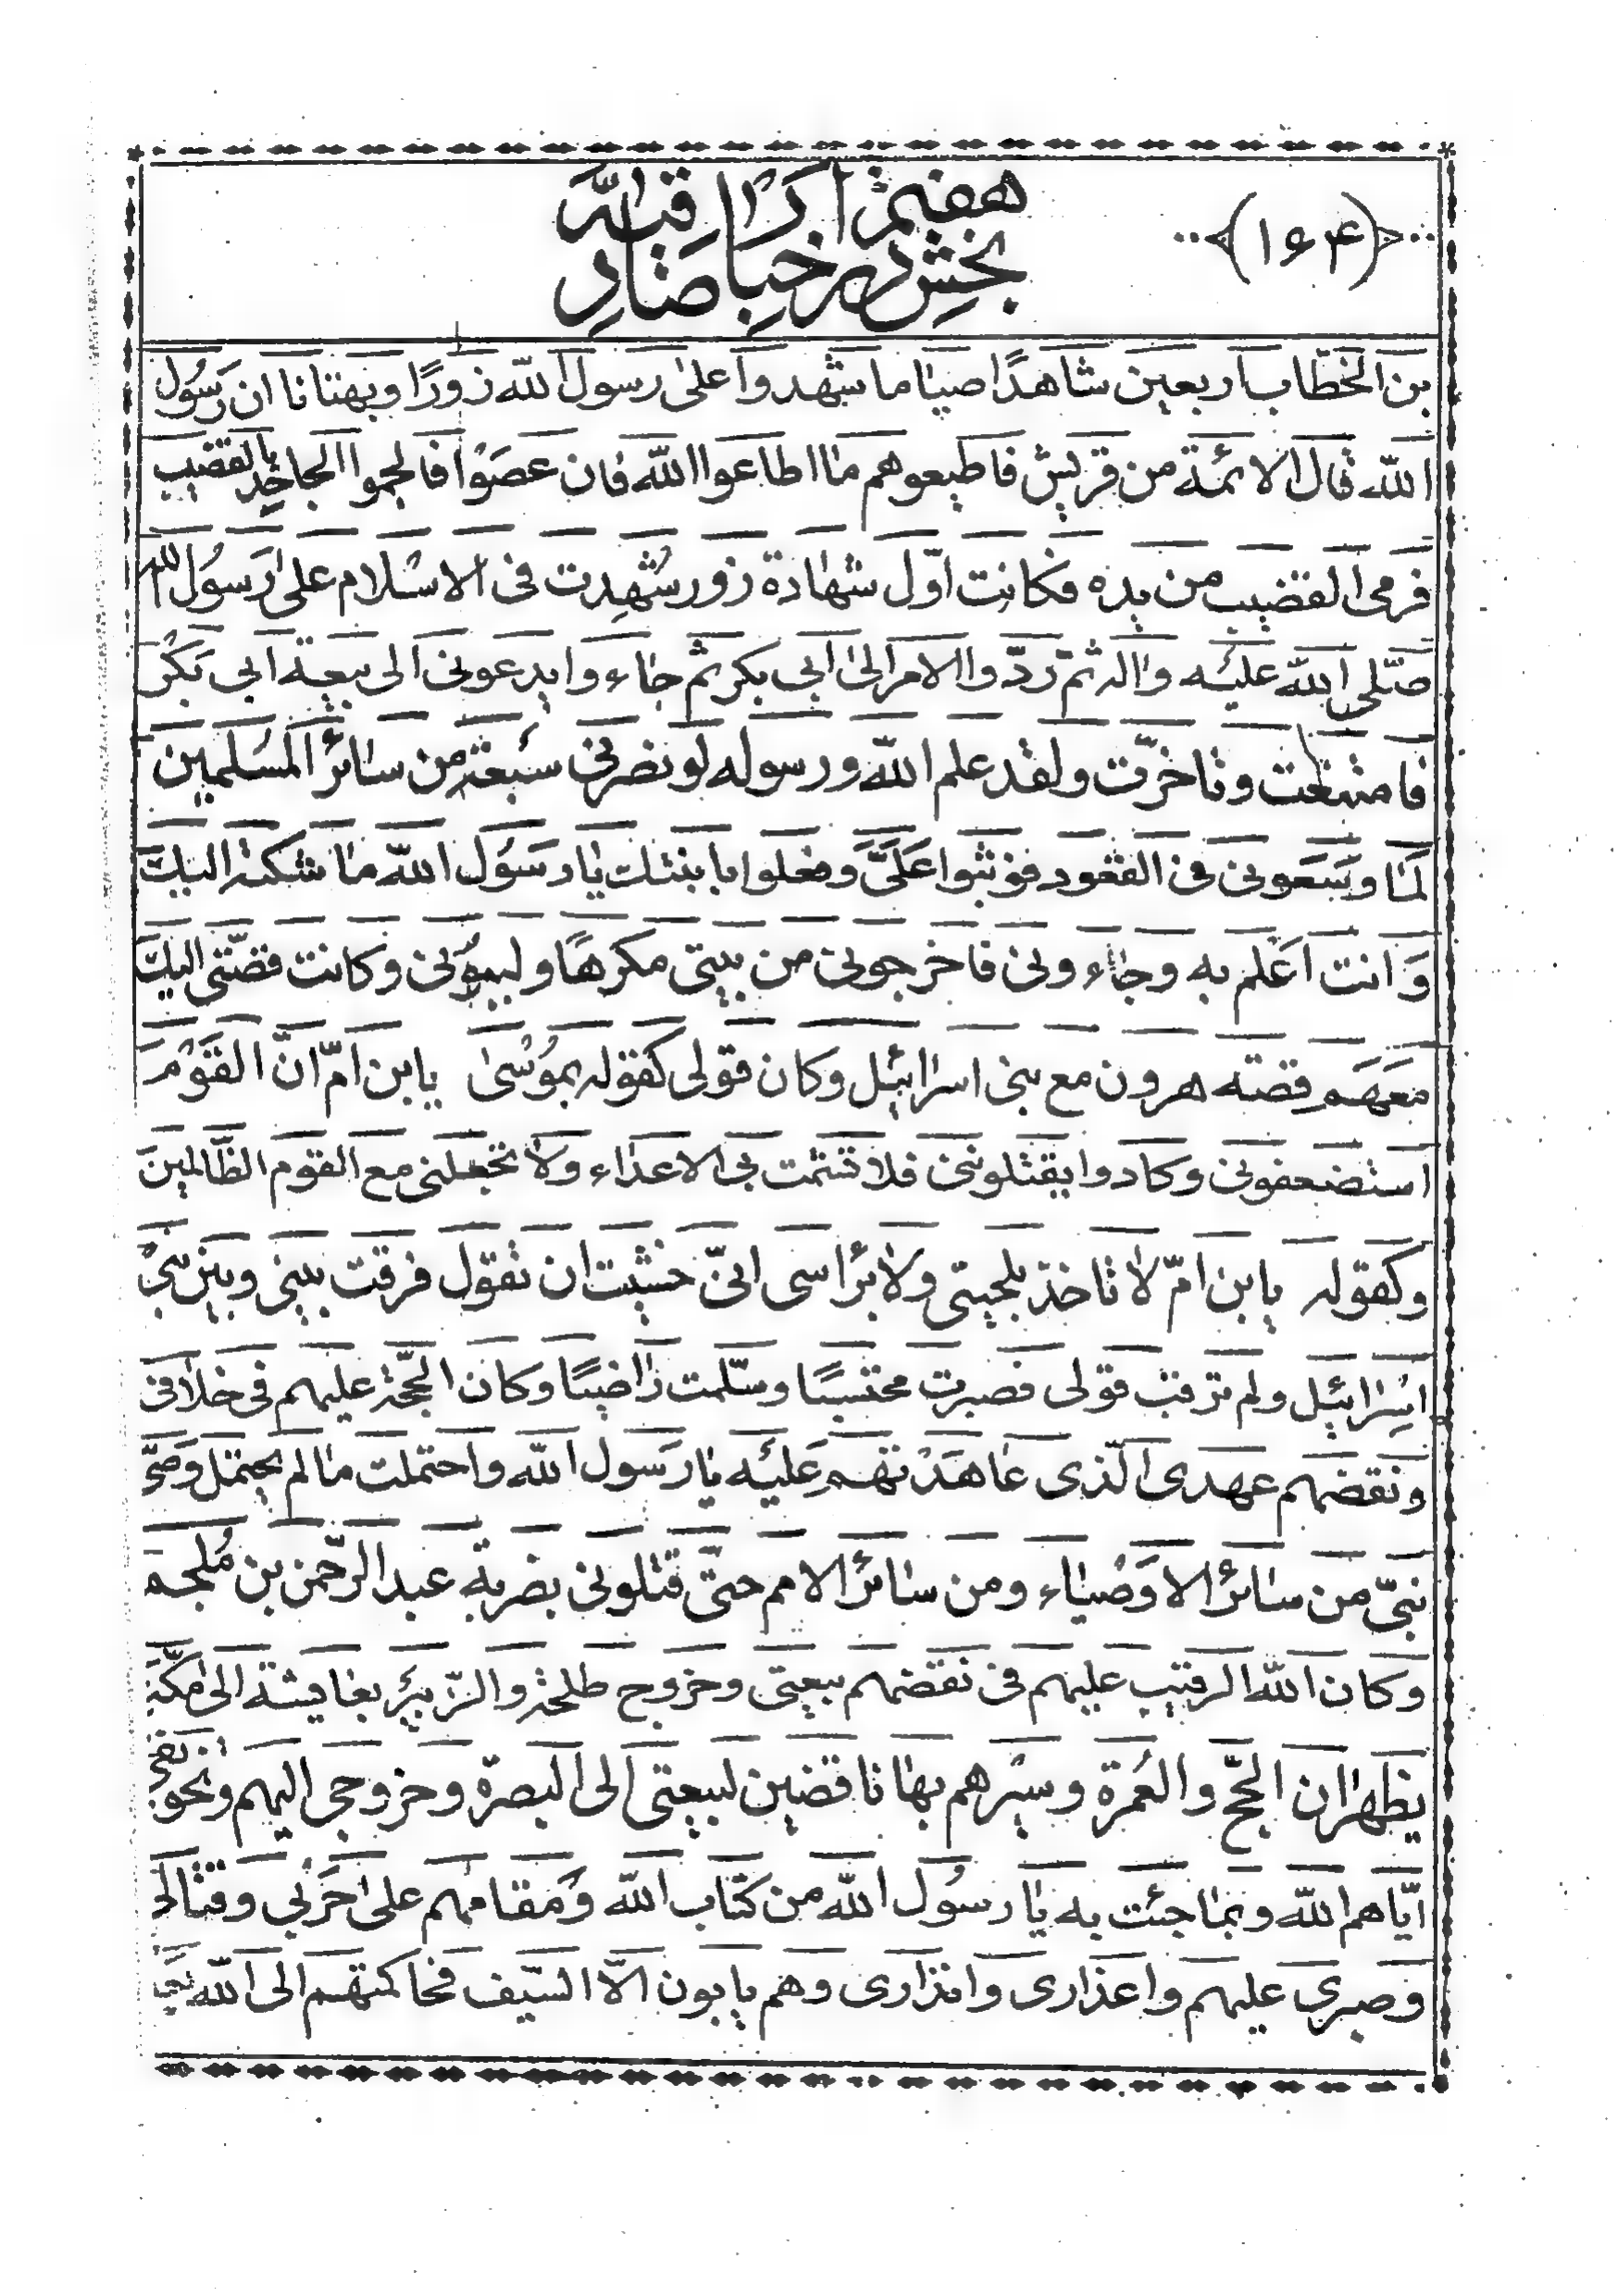 ﴿۱۶۴﴾
بخش هفتم
در اخبار صادقیّه
بن الخطّاب اربعین شاهدًا صیاما شهدوا علی رسول الله زورًا وبهتانا ان رسُول
الله قال الائمة من قریش فاطیعوهم ما اطاعوا الله فان عصَوْا فالجموا بالقضیب
فرمی القضیب من یده فکانت اوّل شهادة زور شُهِدت فی الاسْلام علی رَسوُل الله
صَلّی الله علیْه واله ثمّ ردّوا الامر الی ابی بکر ثم جاء وا یدعونی الی بیعة ابی بَکْر
فامتنعت وتاخرّت ولقد علم الله ورسوله لو نصرنی سَبعة من سائر المسْلمین
لمَا وسَعَونی فی القعود فوثبوا عَلَیَّ وفعلوا بابنتك یا رسَوُل الله ما شکته الیك
وَانت اعَلم به وجاء ونی فاخرجونی من بیتی مکرهًا ولببوُنی وکانت قصّتی الیك
معهَم قصته هرون مع بنی اسرائیل وکان قولی کقوله بموُسْی یابن امّ انّ القَوْمَ
استضعفونی وکادوا یقتلوننی فلا تشمت بی الاعداء ولا تجعلنی مع القوم الظّالمینَ
وکقوله یابن امّ لا تاخذ بلحیتی ولا براسی انیّ خشیت ان تقول فرقت بینی وبین بنی
اسِرائیل ولم ترقب قولی فصبرت محتسبًا وسّلمت راضیًا وکان الحجّة علیهم فی خلافی
ونقضهم عهدی الّذی عاهَدْتهم علیَه یا رسَول الله واحتملت ما لم یحتمل وَصیّ
نبیّ من سائر الاوَصْیاء ومن سائر الامم حتّی قتلونی بضربة عبد الرّحمن بن مُلجم
وکان الله الرقیب علیهم فی نقضهم بیعتی وخروج طلحة والزّبیر بعایشة الی مکّة
یظهران الحجّ والعُمرة وسیْرهم بها ناقضین لبیعتی الی البصرة وخروجی الیهم وتخویفی
ایّاهم الله وبما جئت به یا رسوُل الله من کتاب الله ومَقامهم علی حَرْبی وقتالی
وصبری علیهم واعذاری وانذاری وهم یابون الاّ السّیف فحاکمتهم الی الله